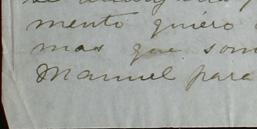 mento quiero
mas que som
Manuel para